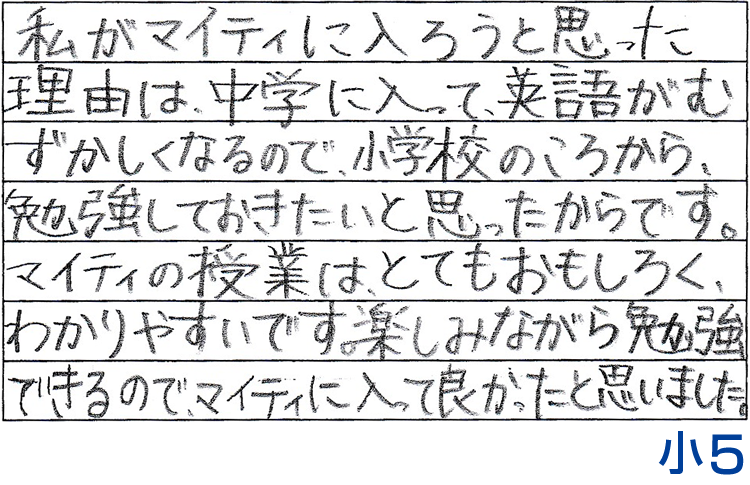 私がマイティに入ろうと思った
理由は、中学に入って、英語がむ
ずかしくなるので、小学校のころから、
勉強しておきたいと思ったからです。
マイティの授業は、とてもおもしろく、
わかりやすいです。楽しみながら勉強
できるので、マイティに入って良かったと思いました。
小5